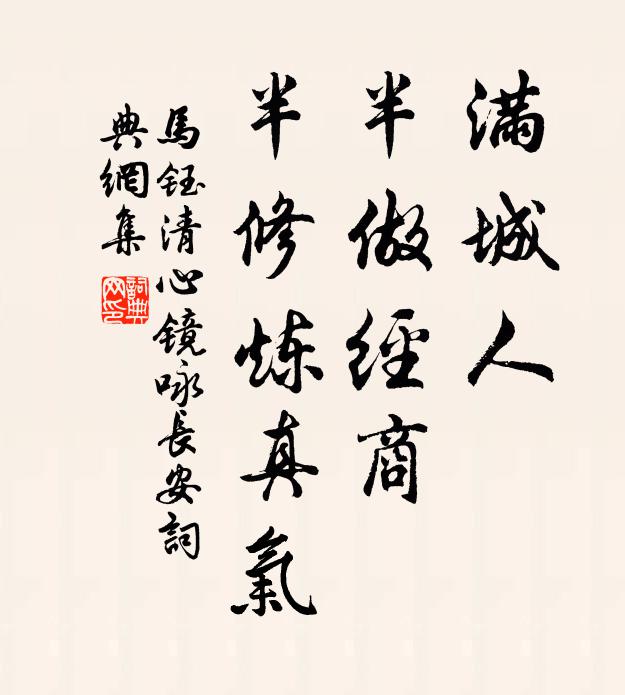 滿城人
半做經商
半修炼真氣
馬鈺清心鏡咏長安詞
典網集
詞典
网印